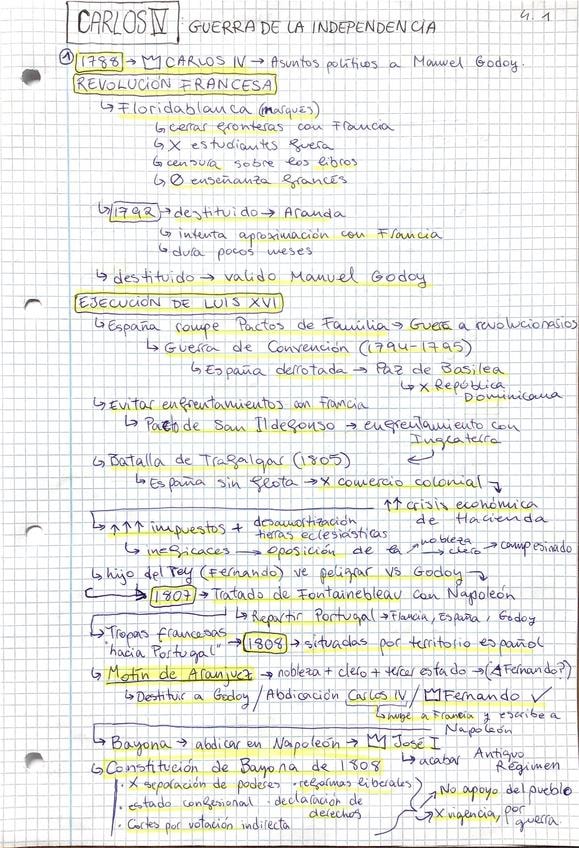 CARLOS IV: GUERRA DE LA INDEPENDENCIA
4.1
① 1788 → CARLOS IV → Asuntos políticos a Manuel Godoy.
REVOLUCIÓN FRANCESA
↳ Floridablanca (marqués)
↳ cerrar fronteras con Francia
↳ X estudiantes fuera
↳ censura sobre los libros
↳ ∅ enseñanza francés
↳ 1792 → destituido → Aranda
↳ intenta aproximación con Francia
↳ dura pocos meses
↳ destituido → valido Manuel Godoy
EJECUCIÓN DE LUIS XVI
↳ España rompe Pactos de Familia → Guerra a revolucionarios
↳ Guerra de Convención (1794-1795)
↳ España derrotada → Paz de Basilea
↳ X República Dominicana
↳ Evitar enfrentamientos con Francia
↳ Pacto de San Ildefonso → enfrentamiento con Inglaterra
↳ Batalla de Trafalgar (1805)
↳ España sin flota → X comercio colonial
↑↑ crisis económica de Hacienda
↳ ↑↑↑ impuestos + desamortización tierras eclesiásticas
↳ ineficaces → oposición de la → nobleza → clero → campesinado
↳ hijo del rey (Fernando) ve peligrar vs Godoy
→ 1807 → Tratado de Fontainebleau con Napoleón
↳ Repartir Portugal → Francia, España, Godoy
↳ Tropas francesas "hacia Portugal" → 1808 → situadas por territorio español
↳ Motín de Aranjuez → nobleza + clero + tercer estado → (Fernando?)
↳ Destituir a Godoy / Abdicación Carlos IV / Fernando ✓
↳ huye a Francia y escribe a Napoleón
↳ Bayona → abdicar en Napoleón → José I
↳ acabar Antiguo Régimen
↳ Constitución de Bayona de 1808
· X separación de poderes · reformas liberales
· estado confesional · declaración de derechos
· Cortes por votación indirecta
→ No apoyo del pueblo
→ X vigencia, por guerra.